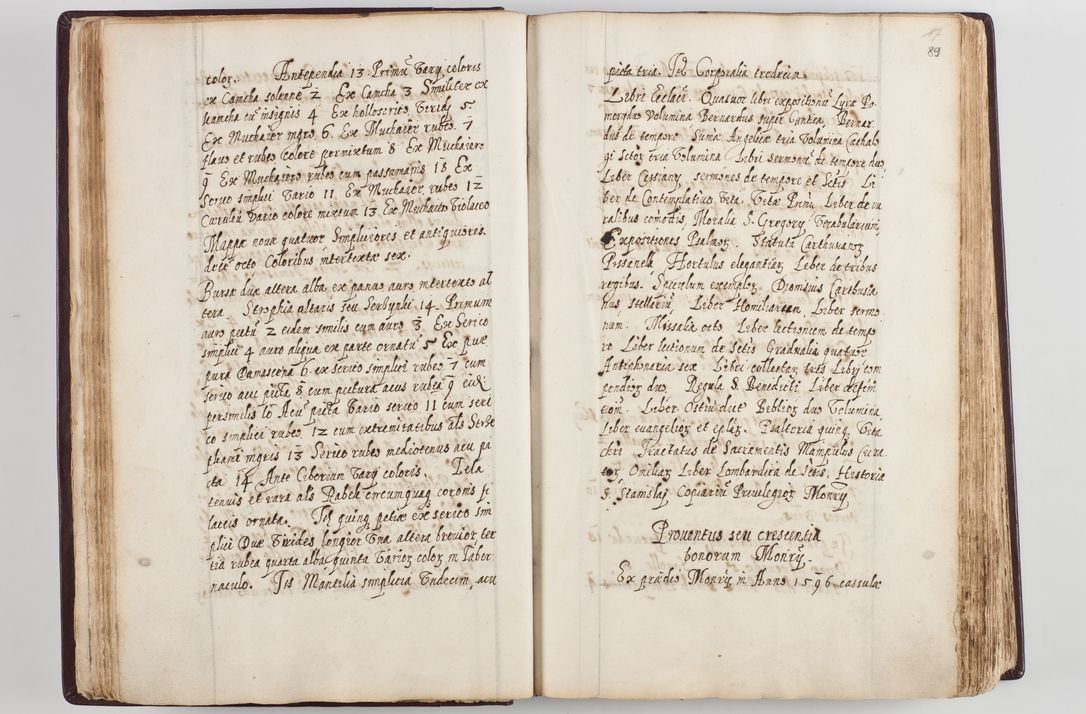 color. Antependia 13 Primū varÿ coloris
ex Camcha solenne 2 Ex Camcha 3 Similiter ex
kamcha cū insignis 4 Ex holloserico 5
Ex Muchaier nigro 6. Ex Muchaier rubeo. 7
flavo et rubeo colore permixtum 8 Ex Muchaiero
9 Ex Muchaiero rubeo cum passamanis 10 Ex
Serico simplici vario 11 Ex Muchaier. rubeo 12
Cæruleū vario colore mixtum 13 Ex Muchaiero violaceo
Mappæ novæ quatuor simpliciores et antiquiores.
octo Coloribus intertextæ sex.
Bursæ duæ altera alba ex panno auro intertexto al
tera. altaris seu 14. Primum
auro 2 eidem similis cum auro 3 Ex Serico
simplici 4 auro aliqua ex parte ornatū 5 Ex pur
pura Damascena 6. ex serico simplici rubeo. 7 cum
serico acu picta 8 cum pectura acus rubea 9
persimilis 10 Acu picta vario serico 11 cum seri
co simplici rubeo. 12 cum extremitatibus als
nigris 13 Serico rubeo mediotenus acu pi
cta 14 Ante Ciborium varÿ coloris. Tela
tenuis et rara als Rabek circumquaq coronis
laceis ornata. quinq petiæ ex serico sim
plici Duæ virides longior una altera brevior ter
tia rubea quarta alba quinta varioꝝ coloꝝ in Taber
naculo. Mantilia simplicia Undecim, acu
89
picta tria. Corporalia tredecim.
Libri Ecclaci. Quatuor libri expositionū Lyræ Po
volumina Bernardus super Cantica, Bernar
dus de tempore Sumæ Angelicæ tria volumina
gi tria volumina Libri sermonū de tempore duo
Liber sermones de tempore et Li
ber de Contemplativa vita, Liber de
Moralia S. Gregorÿ Vocabularium,
Expositiones Psalmoꝝ. Statuta Carthusianoꝝ
Pissanella Hortulus elegantiaꝝ Liber de tribus
regibus. Speculum exemploꝝ Dionisius Carthusia
nus, Liber Homiliarum, Liber sermo
num. Missalia octo. Liber lectionum de tempo
re Liber lectionum de Gradualia quatuor
Antiphonaria sex Libri collectaꝝ tres Libri com
pendioꝝ duo Regula S. Benedicti Liber
Liber Biblioꝝ duo Volumina
Liber evangelioꝝ et eplaꝝ. Psalteria quinq.
Tractatus de Sacramentis Manipulus Cura
toꝝ Omiliaꝝ Liber Historia
S. Stanislaj Copiariū Privilegioꝝ Monrÿ
Proventus seu crescentia
bonorum Monrÿ.
Ex prædio Monrÿ in Anno 1596 cassulæ